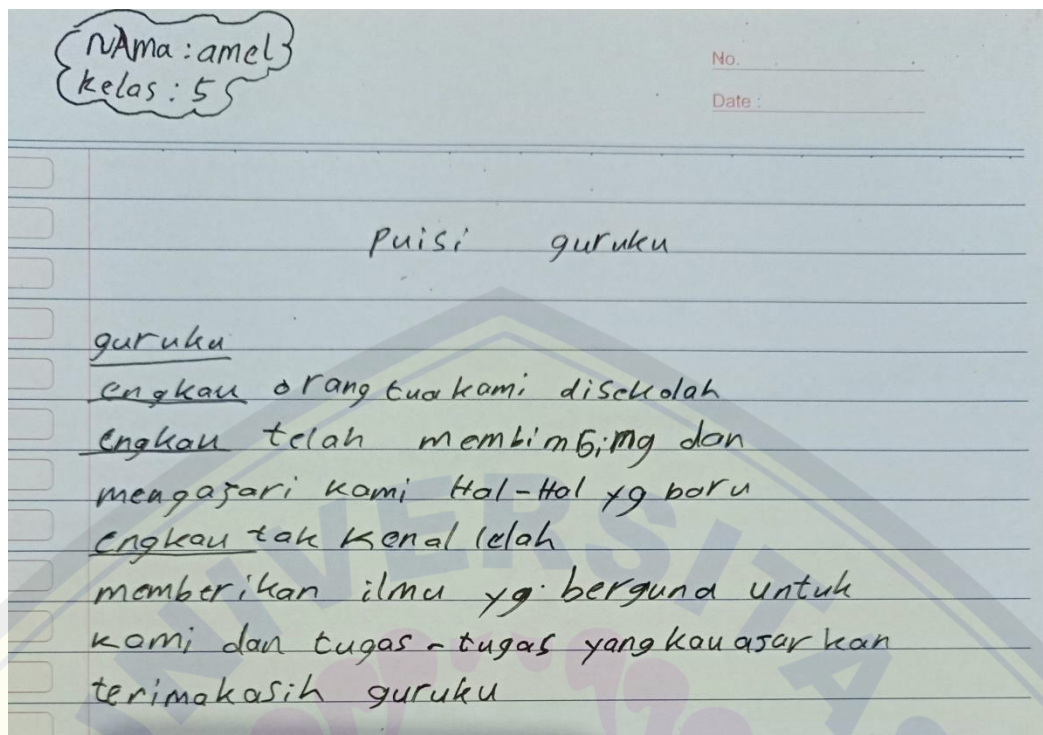 NAma : amel
kelas : 5
No.
Date :
puisi guruku
guruku
engkau orang tua kami disekolah
engkau telah membimbimg dan
mengajari kami Hal-Hal yg baru
engkau tak kenal lelah
memberikan ilmu yg berguna untuk
kami dan tugas-tugas yang kau ajarkan
terimakasih guruku